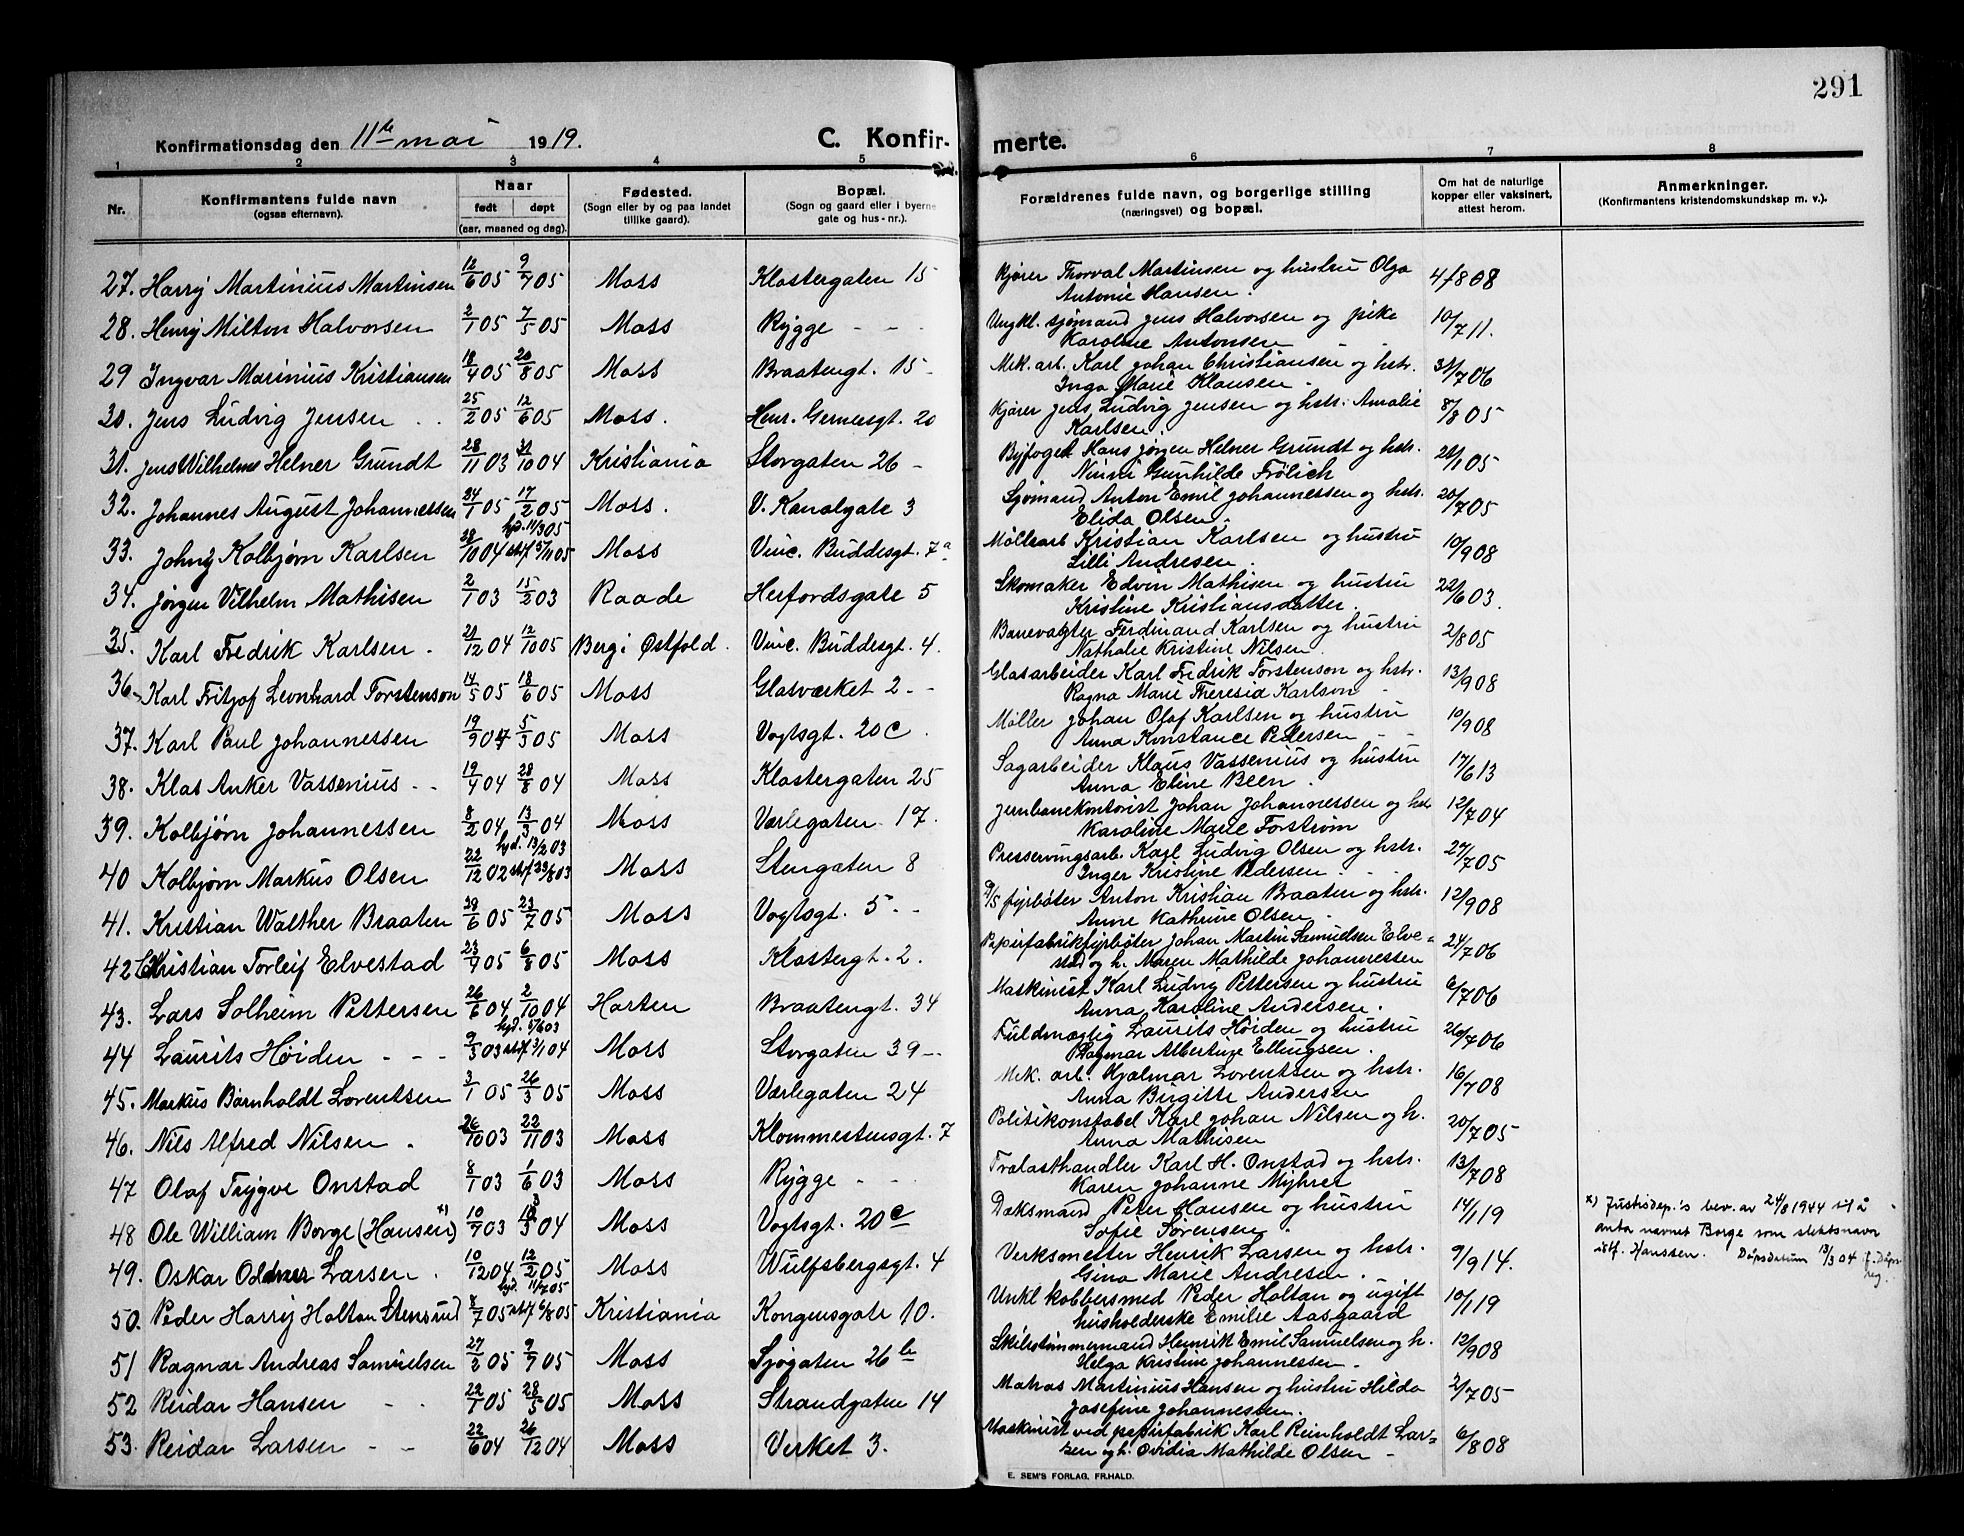 291
Konfirmationsdag den 11te mai 1919. C. Konfir- merte.
1 2 3 4 5 6 7 8
Nr. Konfirmantens fulde navn (ogsaa efternavn). Naar født døpt (aar, maaned og dag). Fødested. (Sogn eller by og paa landet tillike gaard). Bopæl. (Sogn og gaard eller i byerne gate og hus-nr.). Forældrenes fulde navn, og borgerlige stilling (næringsvei) og bopæl. Om hat de naturlige kopper eller vaksinert, attest herom. Anmerkninger. (Konfirmantens kristendomskundskap m. v.).
27. Harry Martinius Martinsen 12/6 05 9/7 05 Moss Klostergaten 15 Kjører Thorval Martinsen og hustru Olga 4/8 08
Antonie Hansen.
28. Henry Milton Halvorsen 2/1 05 7/5 05 Moss Rygge - - Ungkl. sjømand Jens Halvorsen og pike 10/7 11.
Karoline Antonsen
29 Ingvar Marinius Kristiansen 18/4 05 20/8 05 Moss Braatengt. 15 - Mek. arb. Karl Johan Christiansen og hstr. 31/7 06
Inga Marie Klausen.
30. Jens Ludvig Jensen 25/2 05 12/6 05 Moss. Henr. Gernersgt. 20 Kjører Jens Ludvig Jensen og hstr. Amalie 8/8 05
Karlsen.
31. Jens Wilhelms Helner Grundt 28/11 03 31/10 04 Kristiania Storgaten 26 - Byfoget Hans Jørgen Helner Grundt og hstr. 21/1 05
Ninni Gunhilde Frölich
32. Johannes August Johannessen 24/1 05 17/2 05 Moss. V. Kanalgate 3 Sjømand Anton Emil Johannessen og hstr. 20/7 05
Elida Olsen.
33. Johny Kolbjørn Karlsen 28/10 04 hjd. 11/3 05 stf. 5/11 05 Moss Vinc. Buddesgt. 7a Møllearb Kristian Karlsen og hustru 10/9 08
Lilli Andresen.
34. Jørgen Vilhelm Mathisen 2/1 03 15/2 03 Raade Herfordsgate 5 Skomaker Edvin Mathisen og hustru 22/6 03.
Kristine Kristiansdatter.
35. Karl Fredrik Karlsen. 21/12 04 12/10 05 Berg i Østfold. Vinc. Buddesgt. 4. Banevagter Ferdinand Karlsen og hustru 2/8 05
Nathalie Kristine Nilsen.
36. Karl Fritjof Leonhard Torstenson 14/5 05 18/6 05 Moss Glasværket 2 - - Glasarbeider Karl Fredrik Torstenson og hstr. 13/9 08
Ragna Marie Theresia Karlson
37. Karl Paul Johannessen 19/9 04 5/3 05 Moss Vogtsgt. 20 C. Møller Johan Olaf Karlsen og hustru 10/9 08
Anna Konstance Pedersen
38. Klas Anker Vassenius - - 19/4 04 28/8 04 Moss Klostergaten 25 Sagarbeider Klaus Vassenius og hustru 17/6 13
Anna Eline Been.
39. Kolbjørn Johannessen 8/2 04 13/3 04 Moss Værlegaten 17. Jernbanekontorist Johan Johannessen og hstr 12/7 04
Karoline Marie Forstrøm
40 Kolbjørn Markus Olsen 22/12 02 hjd. 13/2 03 stf. 23/8 03 Moss Stengaten 8 Presservingsarb. Karl Ludvig Olsen og hstr. 27/7 05
Inger Kristine Pedersen.
41. Kristian Walther Braaten 28/6 05 23/7 05 Moss Vogtsgt. 5 - - D/S fyrbøter Anton Kristian Braaten og hstr. 12/9 08
Anne Kathrine Olsen.
42 Christian Torleif Elvestad 23/4 05 6/8 05 Moss Klostergt. 2. Papirfabrikfyrbøter Johan Martin Samuelsen Elve= 24/7 06
stad og h. Maren Mathilde Johannessen
43. Lars Solheim Pettersen 26/6 04 2/10 04 Horten Braatengt. 34 Maskinist Karl Ludvig Pettersen og hustru 6/7 06
Anna Karoline Andersen.
44 Laurits Høiden - - - 9/3 03 hjd. 5/6 03 stf. 3/1 04 Moss Storgaten 39 - - Fuldmægtig Laurits Høiden og hustru 26/7 06
Dagmar Albertine Ellingsen.
45. Markus Børnholdt Lorentsen 3/1 05 26/3 05 Moss Værlegaten 24 Mek. arb. Hjalmar Lorentsen og hstr. 16/7 08
Anna Birgitte Andersen
46. Nils Alfred Nilsen. 26/10 03 22/11 03 Moss Klommestensgt. 7 Politikonstabel Karl Johan Nilsen og h. 20/7 05
Anna Mathisen
47 Olaf Trygve Onstad 8/1 03 1/6 03 Moss Rygge - - Trælasthandler Karl H. Onstad og hstr. 13/7 08
Karen Johanne Myhrer
48 Ole William Borge (Hansen) x) 10/7 03 13/3 04 Moss Vogtsgt. 20 C Doksmand Peter Hansen og hustru 14/1 19
Sofie Sørensen.
x) Justisdep.'s bev. av 24/8 1944 til å
anta navnet Borge som slektsnavn
istf. Hanssen. Dåpsdatum 13/3 04 if. Dåps
reg.
49. Oskar Oddner Larsen. 10/12 04 12/2 05 Moss Wulfsbergsgt. 4 Verksmester Henrik Larsen og hstr. 9/9 14.
Gina Marie Andresen.
50. Peder Harry Holtan Stensrud 8/7 05 hjd. 11/7 05 stf. 6/8 05 Kristiania Kongensgate 10. Unkl kobbersmed Peder Holtan og ugift 10/1 19
husholderske Emilie Aasgaard
51 Ragnar Andreas Samuelsen 27/2 05 9/7 05 Moss Sjøgaten 26 b Skibstømmermand Henrik Emil Samuelsen og h. 12/9 08
Helga Kristine Johannessen.
52 Reidar Hansen - - 22/1 05 28/5 05 Moss Strandgaten 14 Matros Martinius Hansen og hustru Hilda 2/7 05
Josefine Johannessen.
53. Reidar Larsen - - 22/6 04 26/12 04 Moss Verket 3. Maskinist ved papirfabrik Karl Reinholdt Lar= 6/8 08
sen og h. Ovidia Mathilde Olsen -
E. SEM'S FORLAG, FR.HALD.